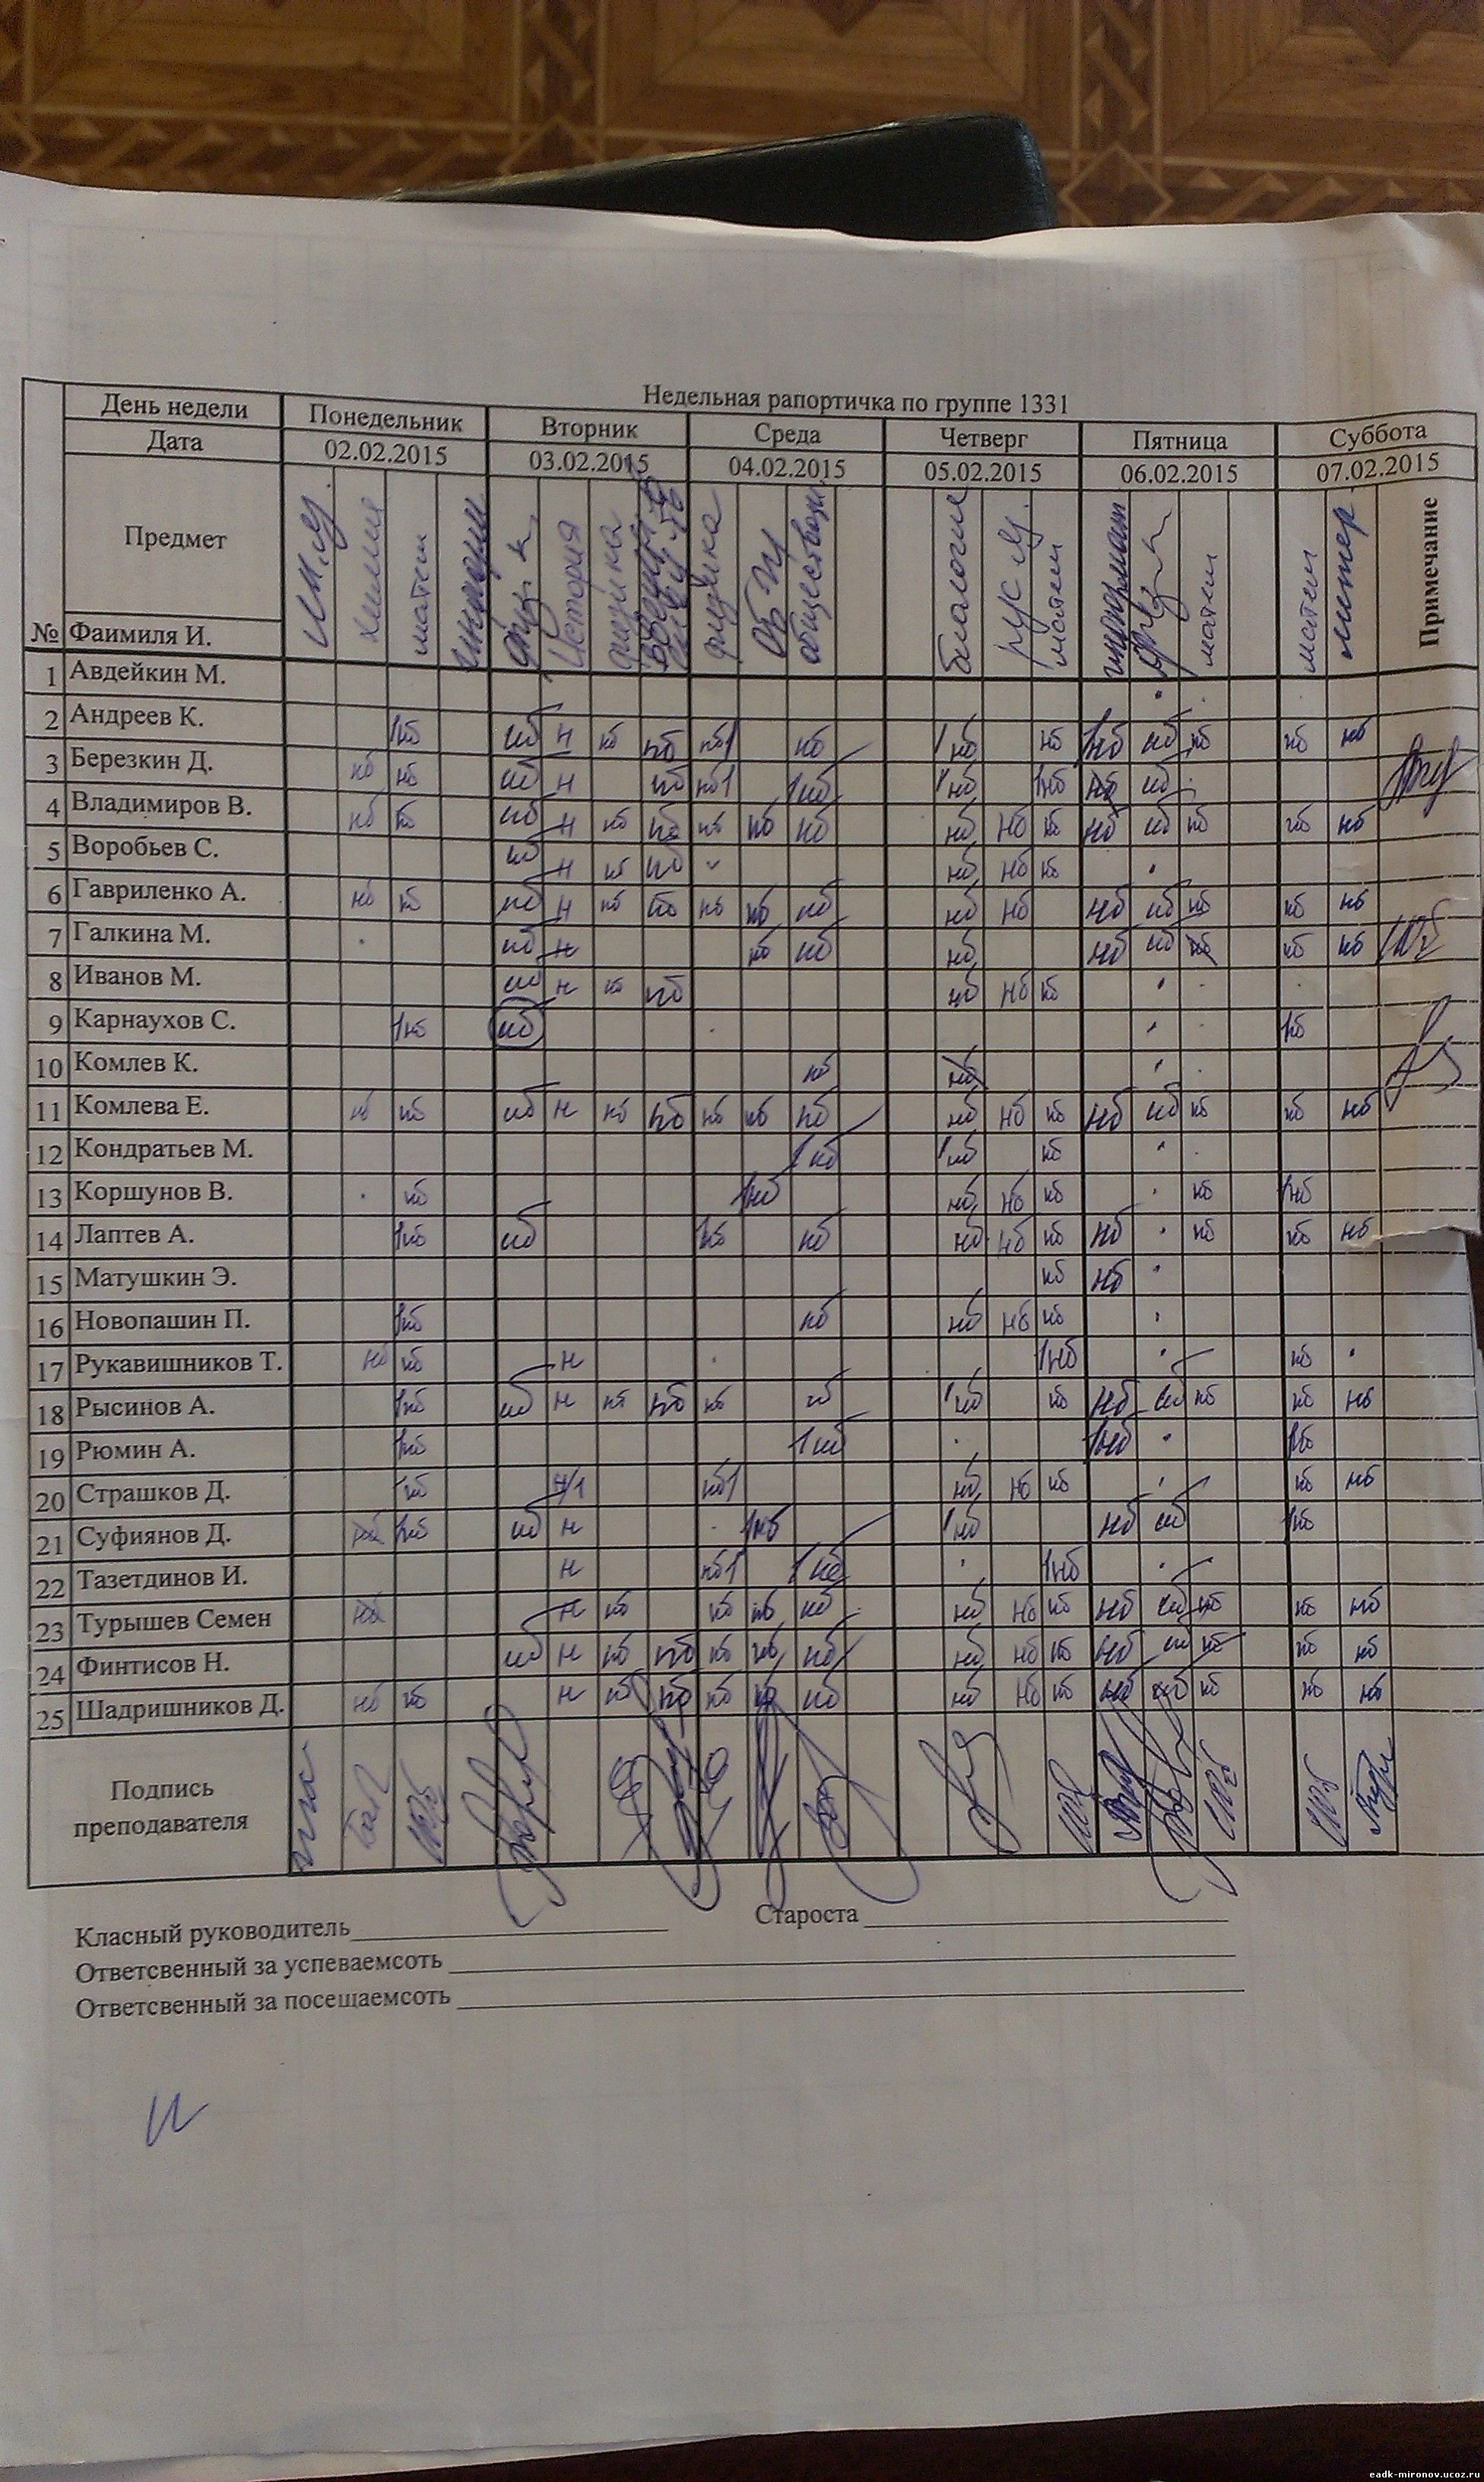 Недельная рапортичка по группе 1331
День недели Понедельник Вторник Среда Четверг Пятница Суббота
Дата 02.02.2015 03.02.2015 04.02.2015 05.02.2015 06.02.2015 07.02.2015
Предмет химия матем История физика физика ОБЖ биология рус яз. матем матем матем литер Примечание
№ Фаимиля И.
1 Авдейкин М.
2 Андреев К. 1нб нб н нб нб нб1 нб 1нб нб 1нб нб нб нб нб
3 Березкин Д. нб нб нб н нб нб1 1нб 1нб 1нб нб нб
4 Владимиров В. нб нб нб н нб нб нб нб нб нб нб нб нб нб нб нб нб
5 Воробьев С. нб н нб нб нб нб нб
6 Гавриленко А. нб нб нб н нб нб нб нб нб нб нб нб нб нб нб нб
7 Галкина М. нб н нб нб нб нб нб нб нб нб
8 Иванов М. нб н нб нб нб нб нб
9 Карнаухов С. 1нб нб 1нб
10 Комлев К. нб нб
11 Комлева Е. нб нб нб н нб нб нб нб нб нб нб нб нб нб нб нб нб
12 Кондратьев М. 1нб 1нб нб
13 Коршунов В. нб 1нб нб нб нб нб 1нб
14 Лаптев А. 1нб нб 1нб нб нб нб нб нб нб нб нб
15 Матушкин Э. нб нб
16 Новопашин П. 1нб нб нб нб нб
17 Рукавишников Т. нб нб н 1нб нб
18 Рысинов А. 1нб нб н нб нб нб нб 1нб нб нб нб нб нб нб
19 Рюмин А. 1нб 1нб 1нб 1нб
20 Страшков Д. 1нб н/1 нб1 нб нб нб нб нб
21 Суфиянов Д. нб 1нб нб н 1нб 1нб нб нб 1нб
22 Тазетдинов И. н нб1 1нб 1нб
23 Турышев Семен нб н нб нб нб нб нб нб нб нб нб нб нб нб
24 Финтисов Н. нб н нб нб нб нб нб нб нб нб нб нб нб нб нб
25 Шадришников Д. нб нб н нб нб нб нб нб нб нб нб нб нб нб нб нб
Подпись
преподавателя
Класный руководитель Староста
Ответсвенный за успеваемсоть
Ответсвенный за посещаемсоть
eadk-mironov.ucoz.ru